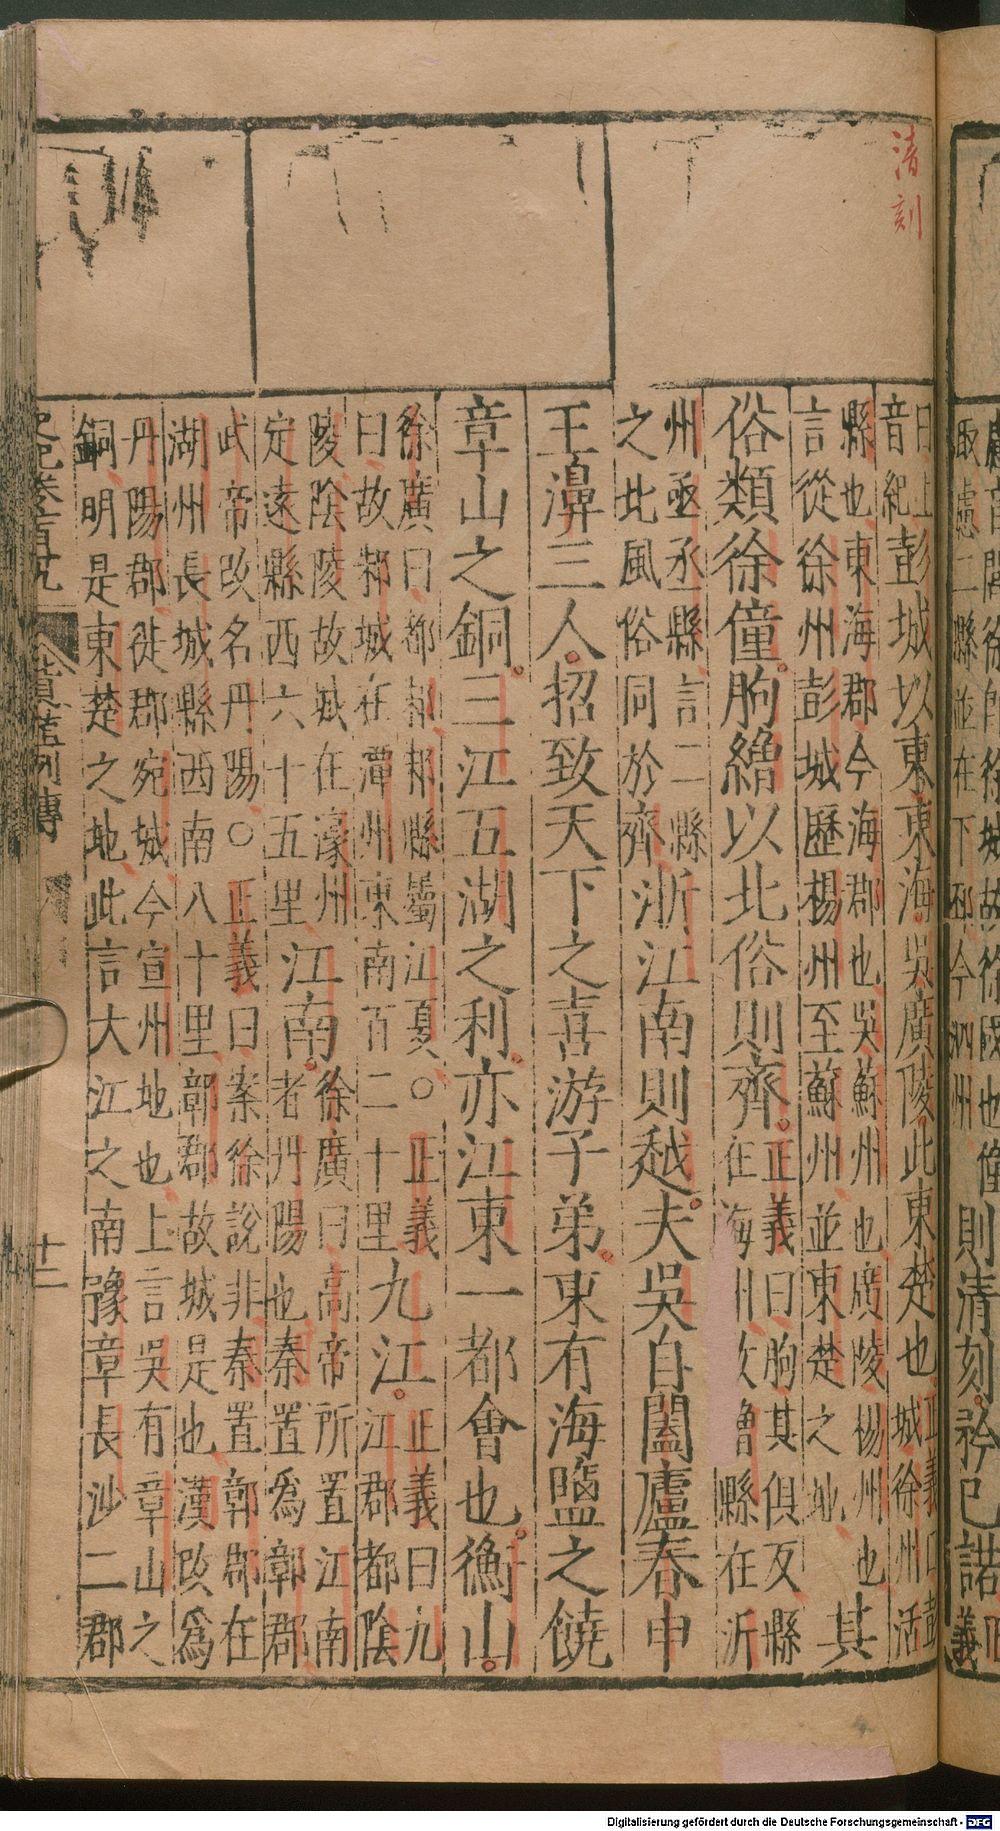 清刻
音閭徐即徐城故徐國也僮
取慮二縣並在下邳今泗州
則清刻矜已諾
正
義
曰上
音紀
彭城以東東海吳廣陵此東楚也
正義曰彭
城徐州活
縣也東海郡今海郡也吳蘇州也廣陵楊州也
言從徐州彭城歷楊州至蘇州並東楚之地
其
俗類徐僮朐繒以北俗則齊
正義曰朐其俱反縣
在海州故鄫縣在沂
州丞丞縣言二縣
之北風俗同於齊
浙江南則越夫吳自闔廬春申
王濞三人招致天下之喜游子弟東有海鹽之饒
章山之銅三江五湖之利亦江東一都會也衡山
徐廣曰都邾邾縣屬江夏○正義
曰故邾城在潭州東南百二十里
九江
正義曰九
江郡都陰
陵陰陵故城在濠州
定遠縣西六十五里
江南
徐廣曰高帝所置江南
者丹陽也秦置爲鄣郡
武帝改名丹陽○正義曰案徐說非秦置鄣郡在
湖州長城縣西南八十里鄣郡故城是也漢改爲
丹陽郡徙郡宛城今宣州地也上言吳有章山之
銅明是東楚之地此言大江之南豫章長沙二郡
貨殖列傳
十二
Digitalisierung gefördert durch die Deutsche Forschungsgemeinschaft - DFG